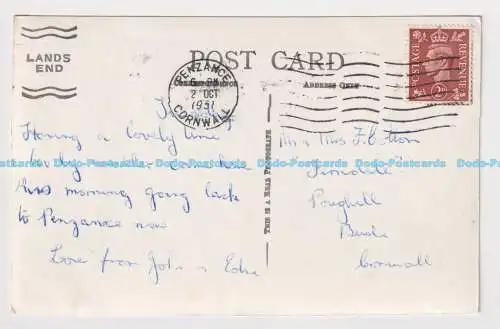 LANDS
END
POST CARD
PENZANCE
2 OCT
1951
CORNWALL
ADDRESS ONLY
POSTAGE
REVENUE
2D
Having a lovely time
lovely weather
this morning going back
to Penzance now
Love from John & Edna
THIS IS A REAL PHOTOGRAPH
Mr & Mrs F. Cotton
Poughill
Bude
Cornwall
Dodo-Postcards Dodo-Postcards Dodo-Postcards Dodo-Postcards Dodo-Postcards Dodo-Postcards